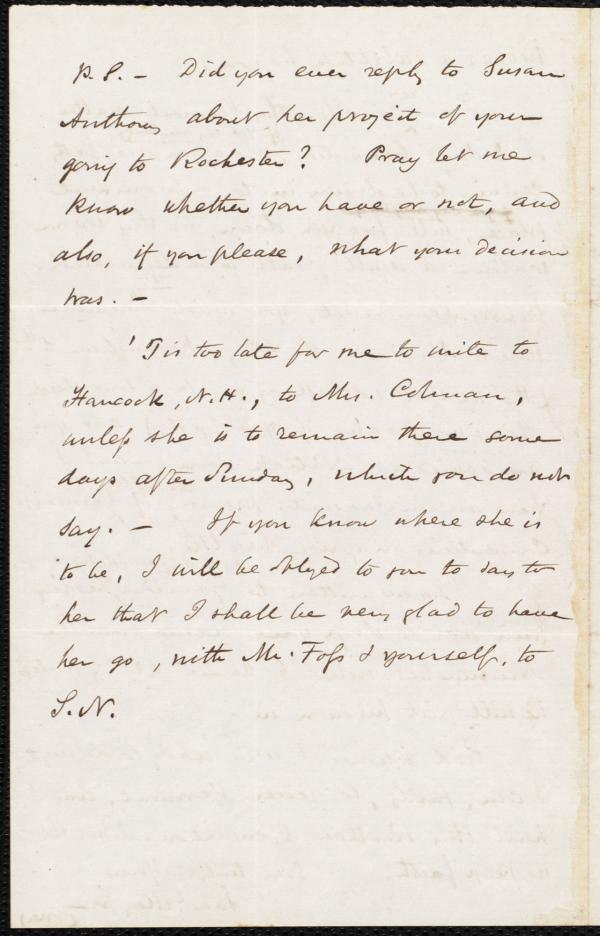 P.S. – Did you ever reply to Susan
Anthony about her project of your
going to Rochester? Pray let me
know whether you have or not, and
also, if you please, what your decision
was. –
'Tis too late for me to write to
Hancock, N.H., to Mrs. Colman,
unless she is to remain there some
days after Sunday, which you do not
say. – If you know where she is
to be, I will be obliged to you to say to
her that I shall be very glad to have
her go, with Mr. Foss & yourself, to
S.N.